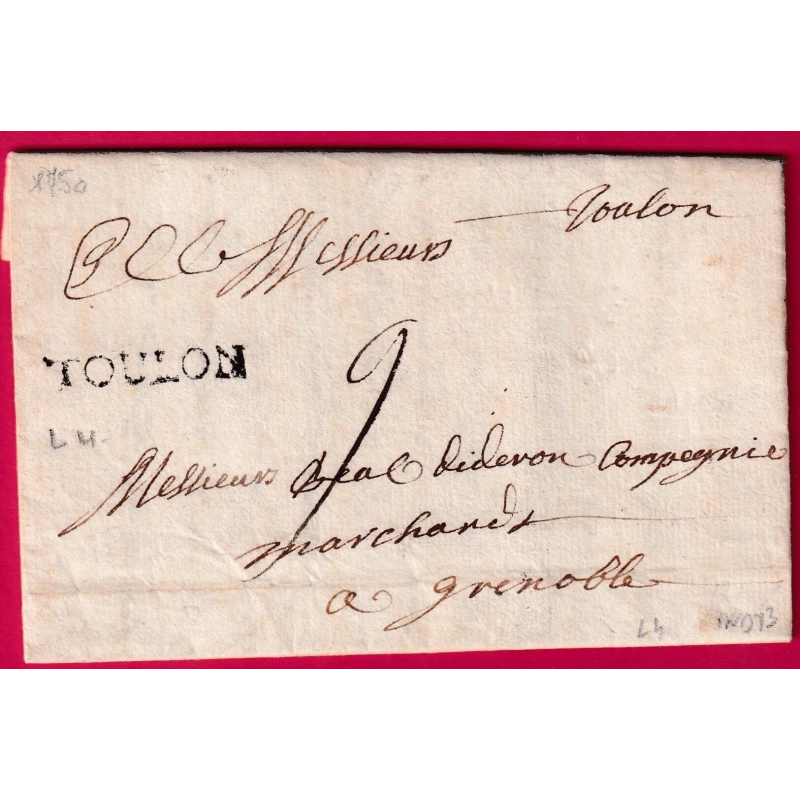 1750
Toulon
A Messieurs
TOULON
9
L 4
Messieurs Beal dideron Compegnie
marchands
a grenoble
L4 IND 13